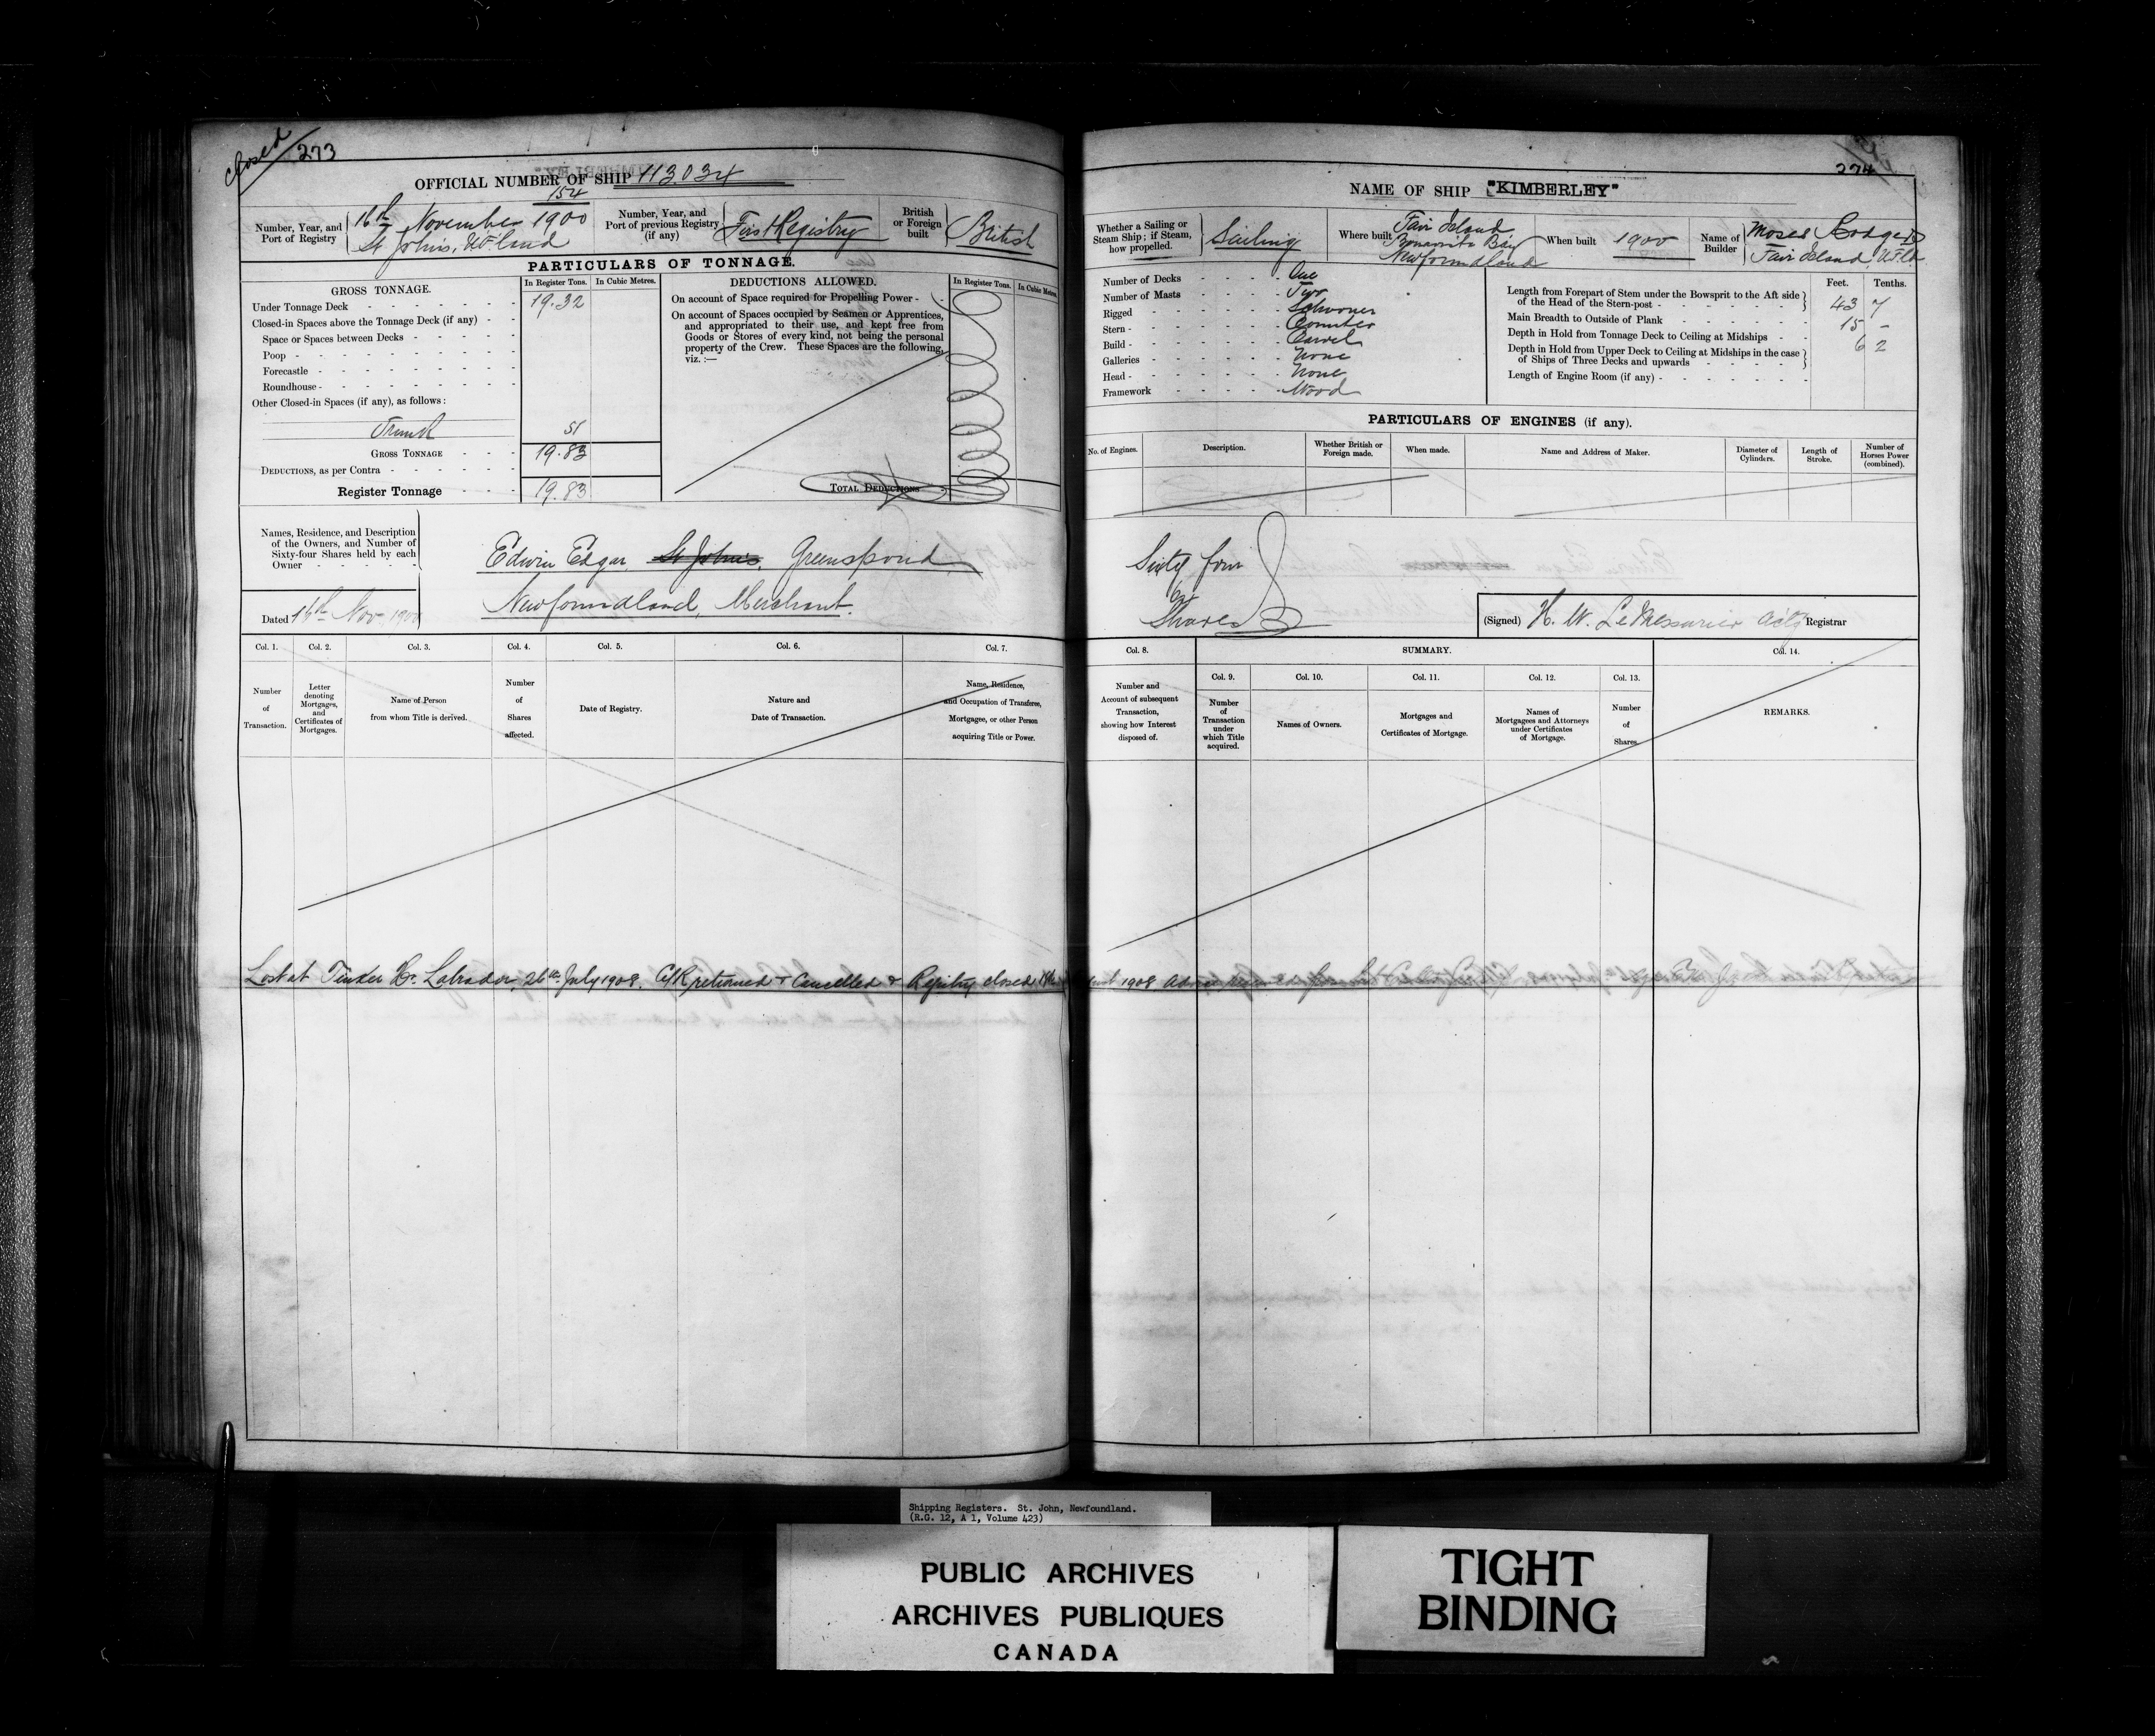 Closed 273
OFFICIAL NUMBER OF SHIP 113.034
154
Number, Year, and Port of Registry
16th November 1900
St John's, N.F.land
Number, Year, and Port of previous Registry (if any)
First Registry
British or Foreign built
British
PARTICULARS OF TONNAGE.
GROSS TONNAGE.
In Register Tons. In Cubic Metres.
Under Tonnage Deck 19.32
Closed-in Spaces above the Tonnage Deck (if any)
Space or Spaces between Decks
Poop
Forecastle
Roundhouse
Other Closed-in Spaces (if any), as follows :
Trunk 51
GROSS TONNAGE 19.83
DEDUCTIONS, as per Contra
Register Tonnage 19.83
DEDUCTIONS ALLOWED.
In Register Tons. In Cubic Metres.
On account of Space required for Propelling Power
On account of Spaces occupied by Seamen or Apprentices,
and appropriated to their use, and kept free from
Goods or Stores of every kind, not being the personal
property of the Crew. These Spaces are the following,
viz. :—
TOTAL DEDUCTIONS
Names, Residence, and Description
of the Owners, and Number of
Sixty-four Shares held by each
Owner
Dated 16th Nov. 1900
Edwin Edgar, St John's, Greenspond,
Newfoundland, Merchant.
Col. 1. Col. 2. Col. 3. Col. 4. Col. 5. Col. 6. Col. 7.
Number of Transaction.
Letter denoting Mortgages, and Certificates of Mortgages.
Name of Person from whom Title is derived.
Number of Shares affected.
Date of Registry.
Nature and Date of Transaction.
Name, Residence, and Occupation of Transferee, Mortgagee, or other Person acquiring Title or Power.
Lost at Tinker Hr. Labrador, 26th July 1908. C/R returned & Cancelled & Registry closed
274
NAME OF SHIP "KIMBERLEY"
Whether a Sailing or Steam Ship; if Steam, how propelled.
Sailing
Where built
Fair Island
Bonavista Bay
Newfoundland
When built 1900
Name of Builder
Moses
Fair Island, N.F.ld
Number of Decks One
Number of Masts Two
Rigged Schooner
Stern Counter
Build Carvel
Galleries None
Head None
Framework Wood
Feet. Tenths.
Length from Forepart of Stem under the Bowsprit to the Aft side
of the Head of the Stern-post 43 7
Main Breadth to Outside of Plank 15 -
Depth in Hold from Tonnage Deck to Ceiling at Midships 6 2
Depth in Hold from Upper Deck to Ceiling at Midships in the case
of Ships of Three Decks and upwards
Length of Engine Room (if any)
PARTICULARS OF ENGINES (if any).
No. of Engines.
Description.
Whether British or Foreign made.
When made.
Name and Address of Maker.
Diameter of Cylinders.
Length of Stroke.
Number of Horses Power (combined).
Sixty four
64
Shares
(Signed) H. W. LeMessurier Actg Registrar
Col. 8. SUMMARY. Col. 14.
Col. 9. Col. 10. Col. 11. Col. 12. Col. 13.
Number and Account of subsequent Transaction, showing how Interest disposed of.
Number of Transaction under which Title acquired.
Names of Owners.
Mortgages and Certificates of Mortgage.
Names of Mortgagees and Attorneys under Certificates of Mortgage.
Number of Shares.
REMARKS.
1908
Shipping Registers. St. John, Newfoundland.
(R.G. 12, A 1, Volume 423)
PUBLIC ARCHIVES
ARCHIVES PUBLIQUES
CANADA
TIGHT
BINDING